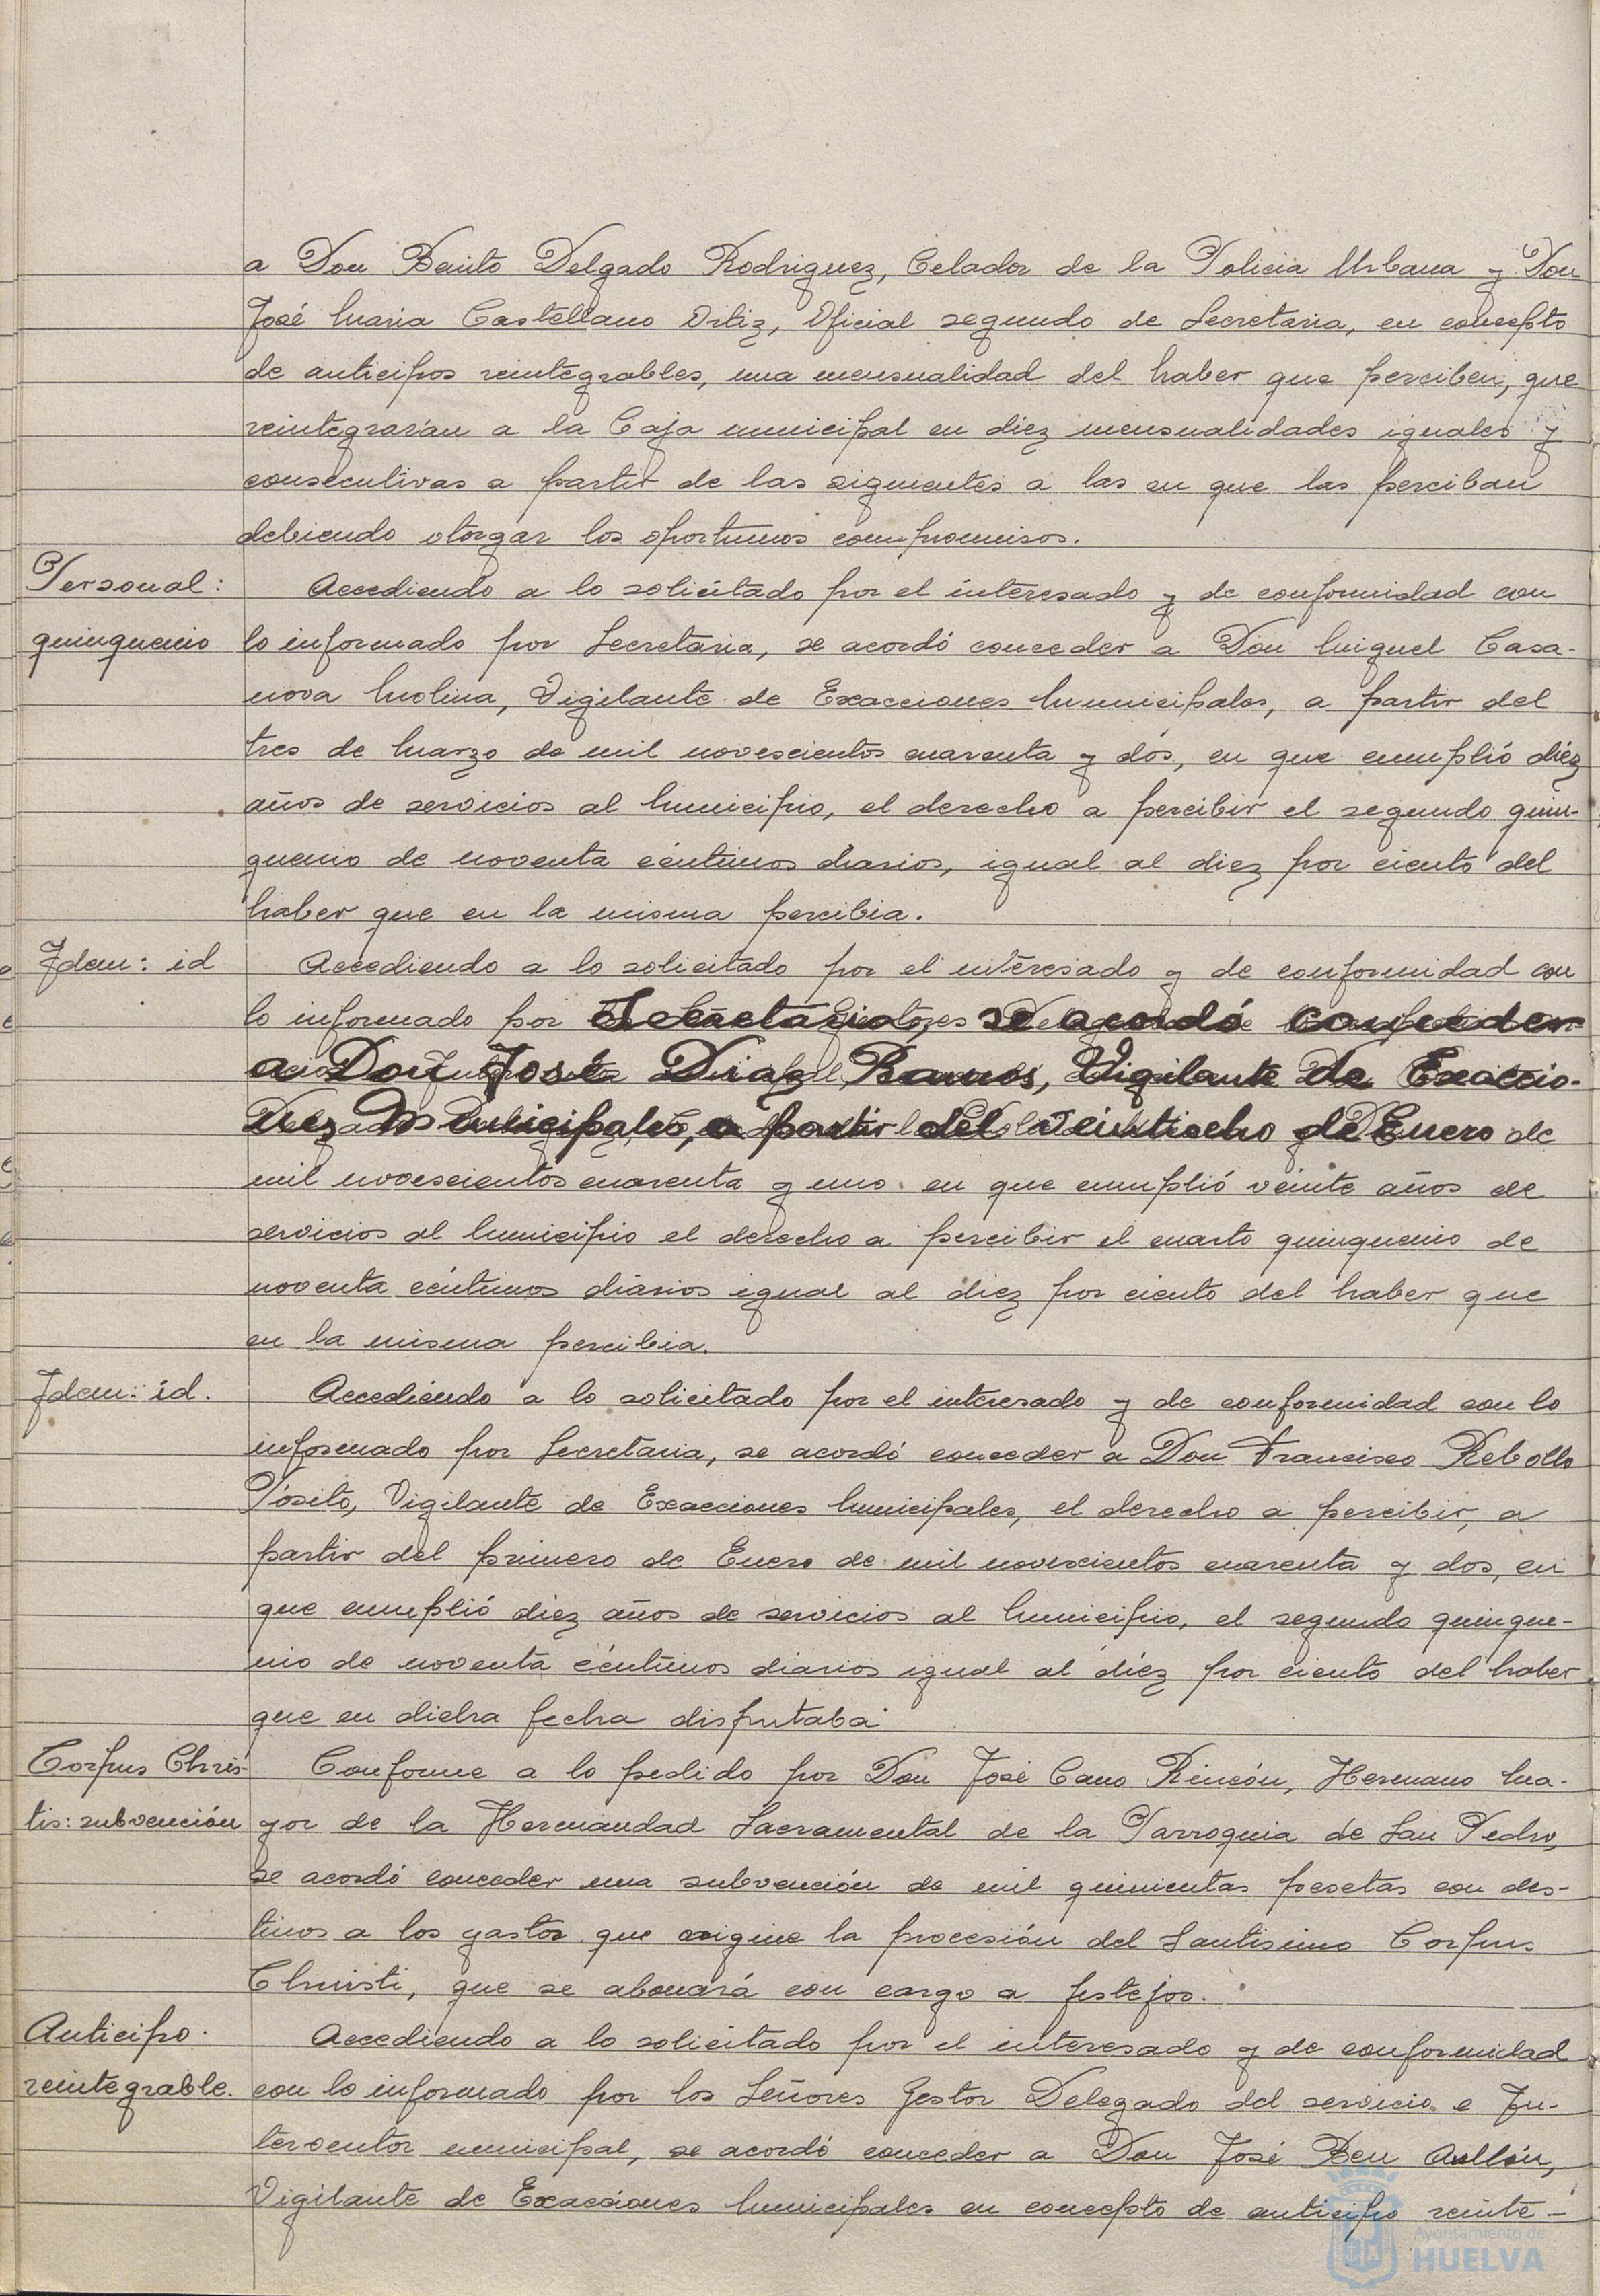 a Don Benito Delgado Rodriguez, Celador de la Policia Urbana y Don
José Maria Castellano Ortiz, Oficial segundo de Secretaria, en concepto
de anticipos reintegrables, una mensualidad del haber que perciben, que
reintegrarán a la Caja municipal en diez mensualidades iguales y
consecutivas a partir de las siguientes a las en que las perciban
debiendo otorgar los oportunos compromisos.
Personal:
quinquenio
Accediendo a lo solicitado por el interesado y de conformidad con
lo informado por Secretaria, se acordó conceder a Don Miguel Casa-
nova Molina, Vigilante de Exacciones Municipales, a partir del
tres de Marzo de mil novescientos cuarenta y dos, en que cumplió diez
años de servicios al Municipio, el derecho a percibir el segundo quin-
quenio de noventa céntimos diarios, igual al diez por ciento del
haber que en la misma percibia.
Idem: id
Accediendo a lo solicitado por el interesado y de conformidad con
lo informado por Secretaria, se acordó conceder
a Don José Diaz Ramos, Vigilante de Exaccio-
nes Municipales, a partir del veintiocho de Enero de
mil novescientos cuarenta y uno en que cumplió veinte años de
servicios al Municipio el derecho a percibir el cuarto quinquenio de
noventa céntimos diarios igual al diez por ciento del haber que
en la misma percibia.
Idem: id.
Accediendo a lo solicitado por el interesado y de conformidad con lo
informado por Secretaria, se acordó conceder a Don Francisco Rebollo
Pósito, Vigilante de Exacciones Municipales, el derecho a percibir, a
partir del primero de Enero de mil novescientos cuarenta y dos, en
que cumplió diez años de servicios al Municipio, el segundo quinque-
nio de noventa céntimos diarios igual al diez por ciento del haber
que en dicha fecha disfrutaba
Corpus Chris-
tis: subvención
Conforme a lo pedido por Don José Cano Rincón, Hermano Ma-
yor de la Hermandad Sacramental de la Parroquia de San Pedro,
se acordó conceder una subvención de mil quinientas pesetas con des-
tinos a los gastos que origine la procesión del Santisimo Corpus
Christi, que se abonará con cargo a festejos.
Anticipo
reintegrable.
Accediendo a lo solicitado por el interesado y de conformidad
con lo informado por los Señores Gestor Delegado del servicio e In-
terventor municipal, se acordó conceder a Don José Ben Aullón,
Vigilante de Exacciones Municipales en concepto de anticipo reinte-
Ayuntamiento de
HUELVA